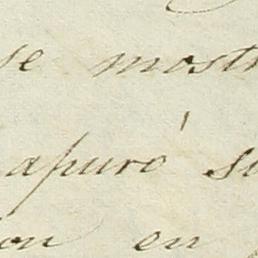 se mostr
apuró su
on en